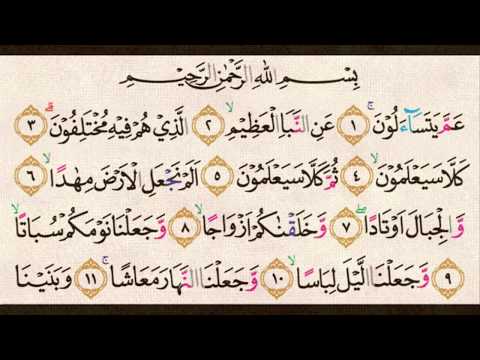 بِسْمِ اللّٰهِ الرَّحْمٰنِ الرَّحِيْمِ
عَمَّ يَتَسَآءَلُوْنَۚ ١ عَنِ النَّبَاِ الْعَظِيْمِۙ ٢ الَّذِيْ هُمْ فِيْهِ مُخْتَلِفُوْنَۗ ٣
كَلَّا سَيَعْلَمُوْنَۙ ٤ ثُمَّ كَلَّا سَيَعْلَمُوْنَ ٥ اَلَمْ نَجْعَلِ الْاَرْضَ مِهٰدًاۙ ٦
وَّالْجِبَالَ اَوْتَادًاۖ ٧ وَّخَلَقْنٰكُمْ اَزْوَاجًاۙ ٨ وَّجَعَلْنَا نَوْمَكُمْ سُبَاتًاۙ
٩ وَّجَعَلْنَا الَّيْلَ لِبَاسًاۙ ١٠ وَّجَعَلْنَا النَّهَارَ مَعَاشًاۚ ١١ وَبَنَيْنَا